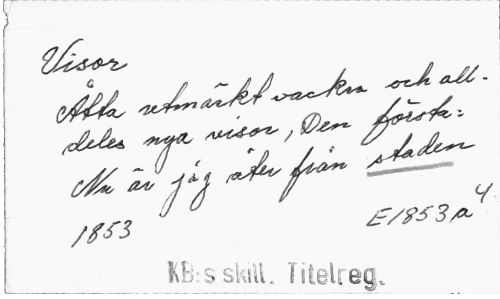 Visor
Åtta utmärkt vackra och all-
deles nya visor, Den första:
Nu är jag åter från staden
1853 E1853a 4.
KB:s skill. Titelreg.